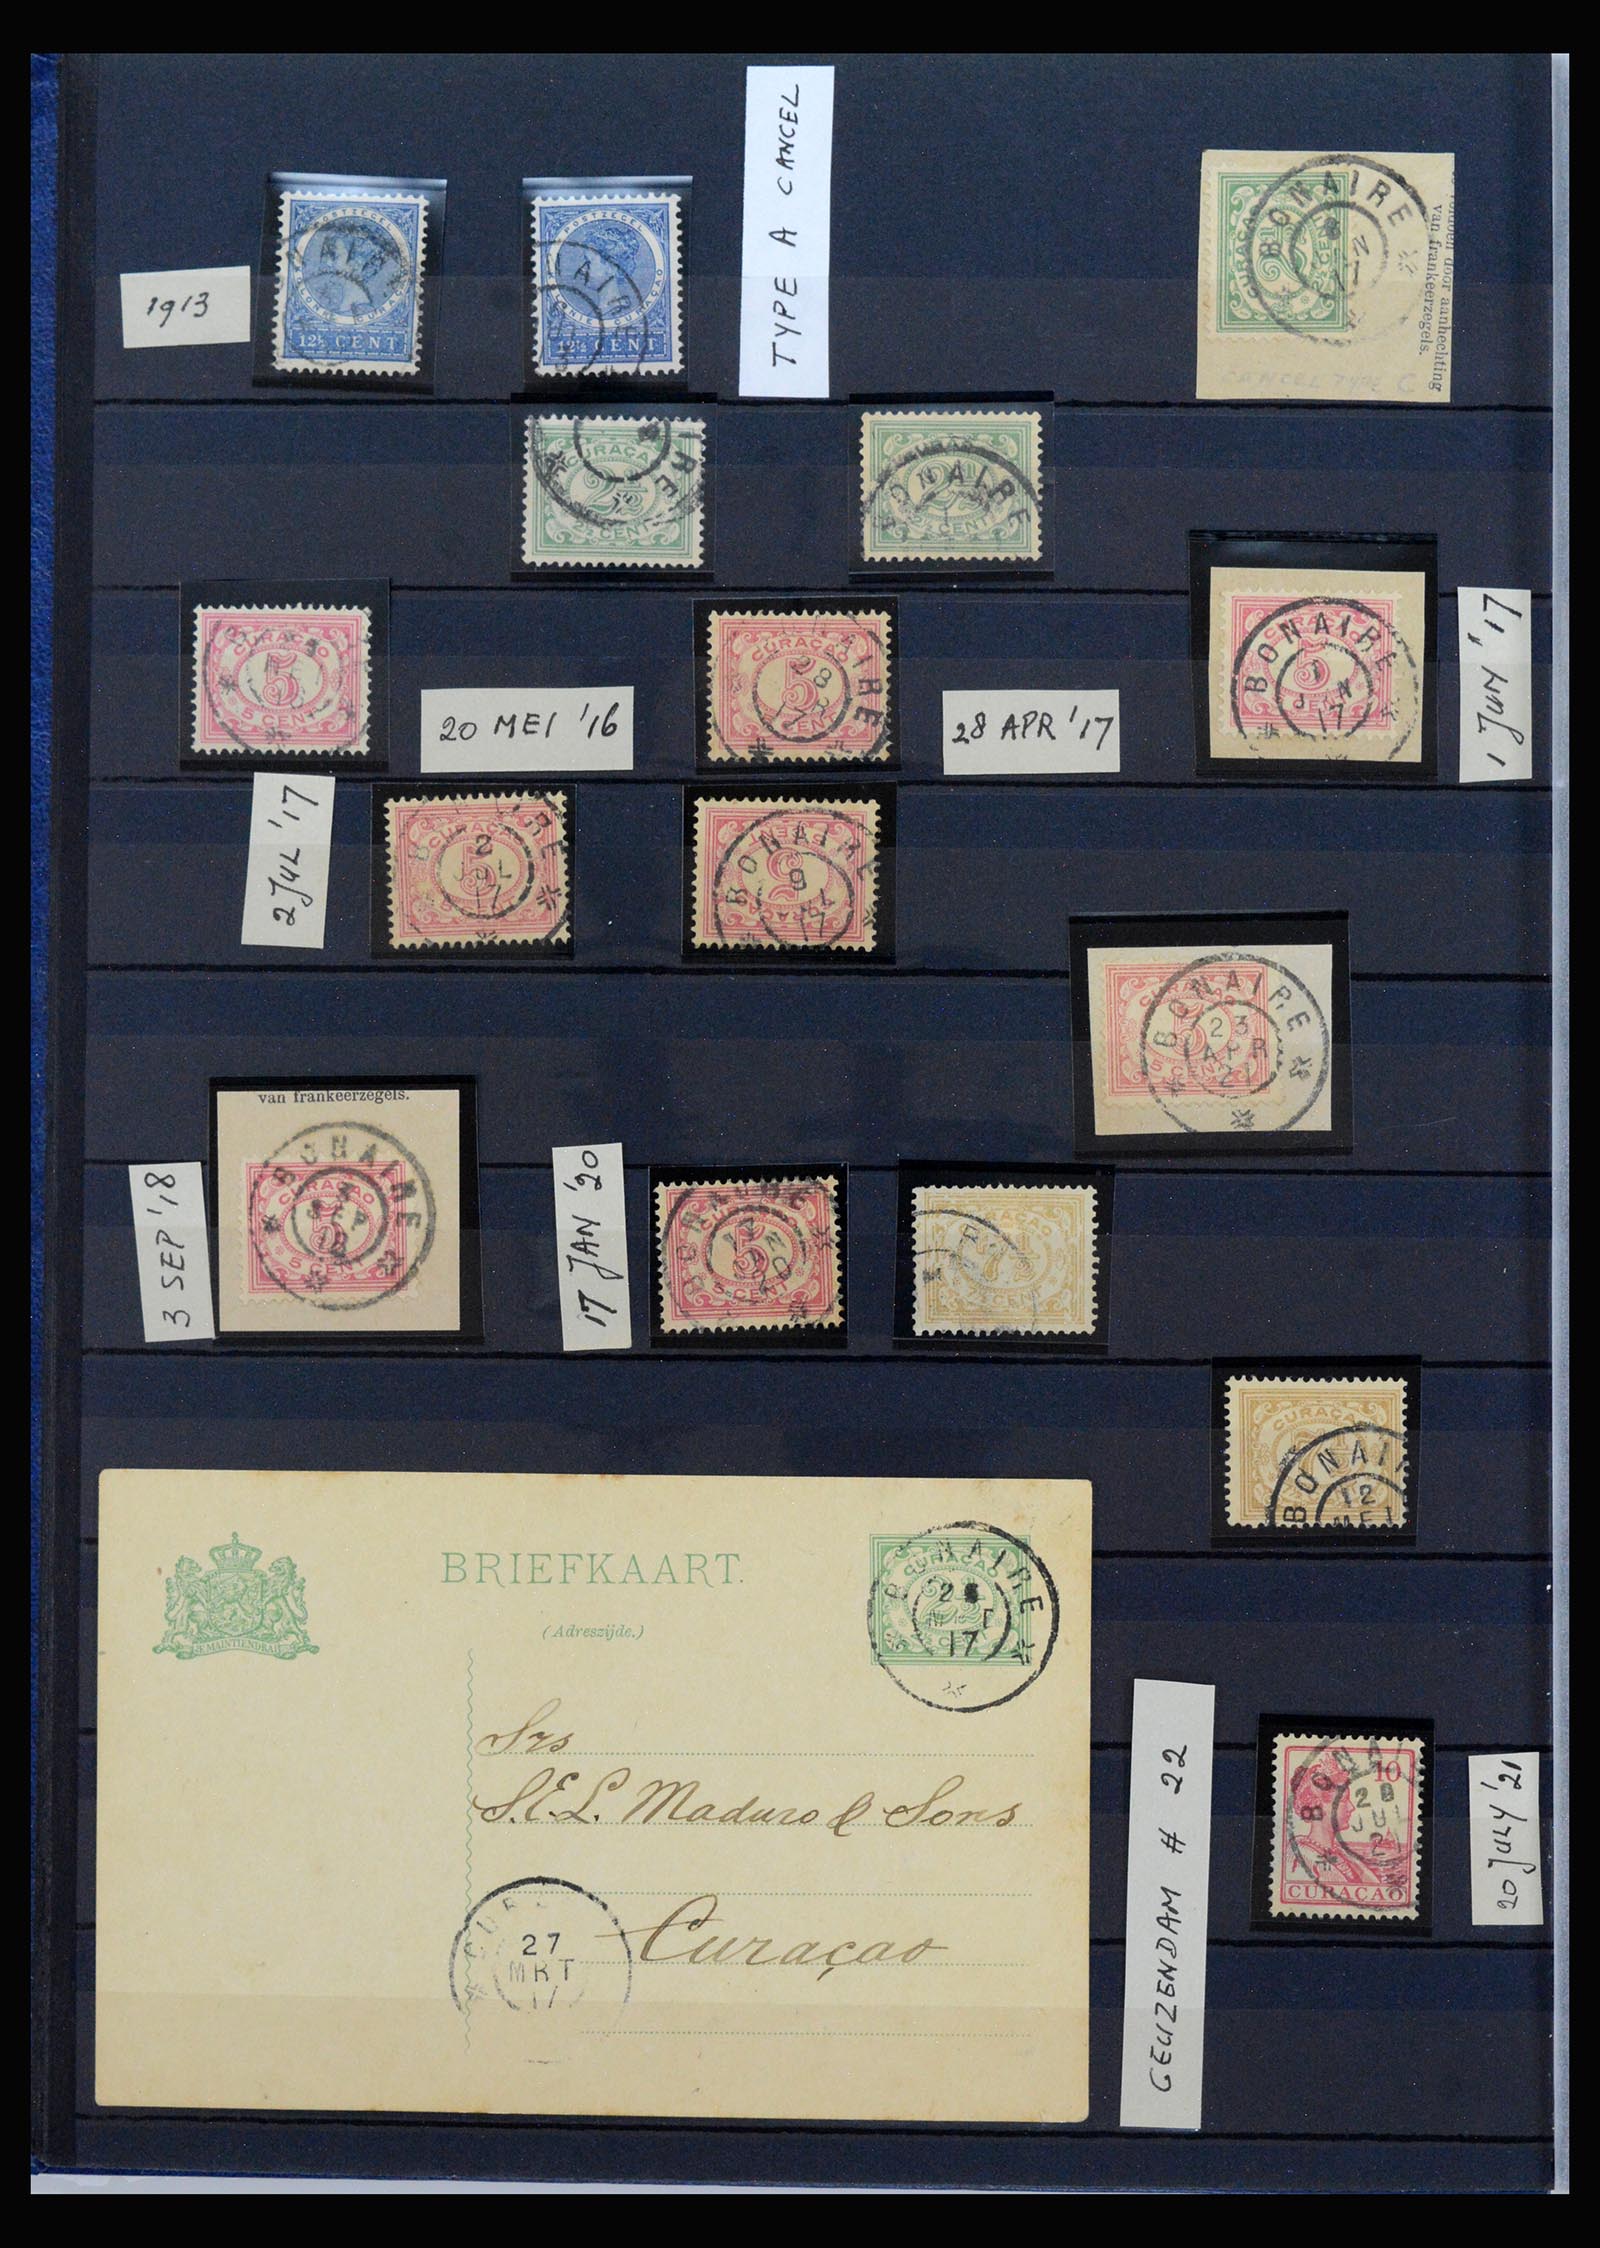 1913
POSTZEGEL
12½ CENT
POSTZEGEL
AIRE
12½ CENT
TYPE A CANCEL
CURAÇAO
BONAIRE
17
door aanhechting
van frankeerzegels.
CANCEL TYPE C
CURAÇAO
2½
2½ CENT
IRE
2½
2½ CENT
BONAIRE
CURAÇAO
5
5 CENT
20 MEI '16
CURAÇAO
AIRE
28
17
28 APR '17
BONAIRE
1
17
5 CENT
1 JUN '17
2 JUL '17
CURAÇAO
2
JUL
17
5
BONAIRE
9
17
5
CURAÇAO
BONAIRE
23
APR
21
5 CENT
3 SEP '18
van frankeerzegels.
BONAIRE
CURAÇAO
3
SEP
18
5 CENT
17 JAN '20
BONAIRE
17
5 CENT
CURAÇAO
7½ CENT
CURAÇAO
BONAIR
12
MEI
BRIEFKAART.
(Adreszijde.)
JE MAINTIENDRAI
CURAÇAO
2½
2½ CENT
NAIRE
17
Srs
S.E.L. Maduro & Sons
Curaçao
CUR
27
MRT
17
GEUZENDAM # 22
10
BONAI
JUL
CURAÇAO
20 JULY '21